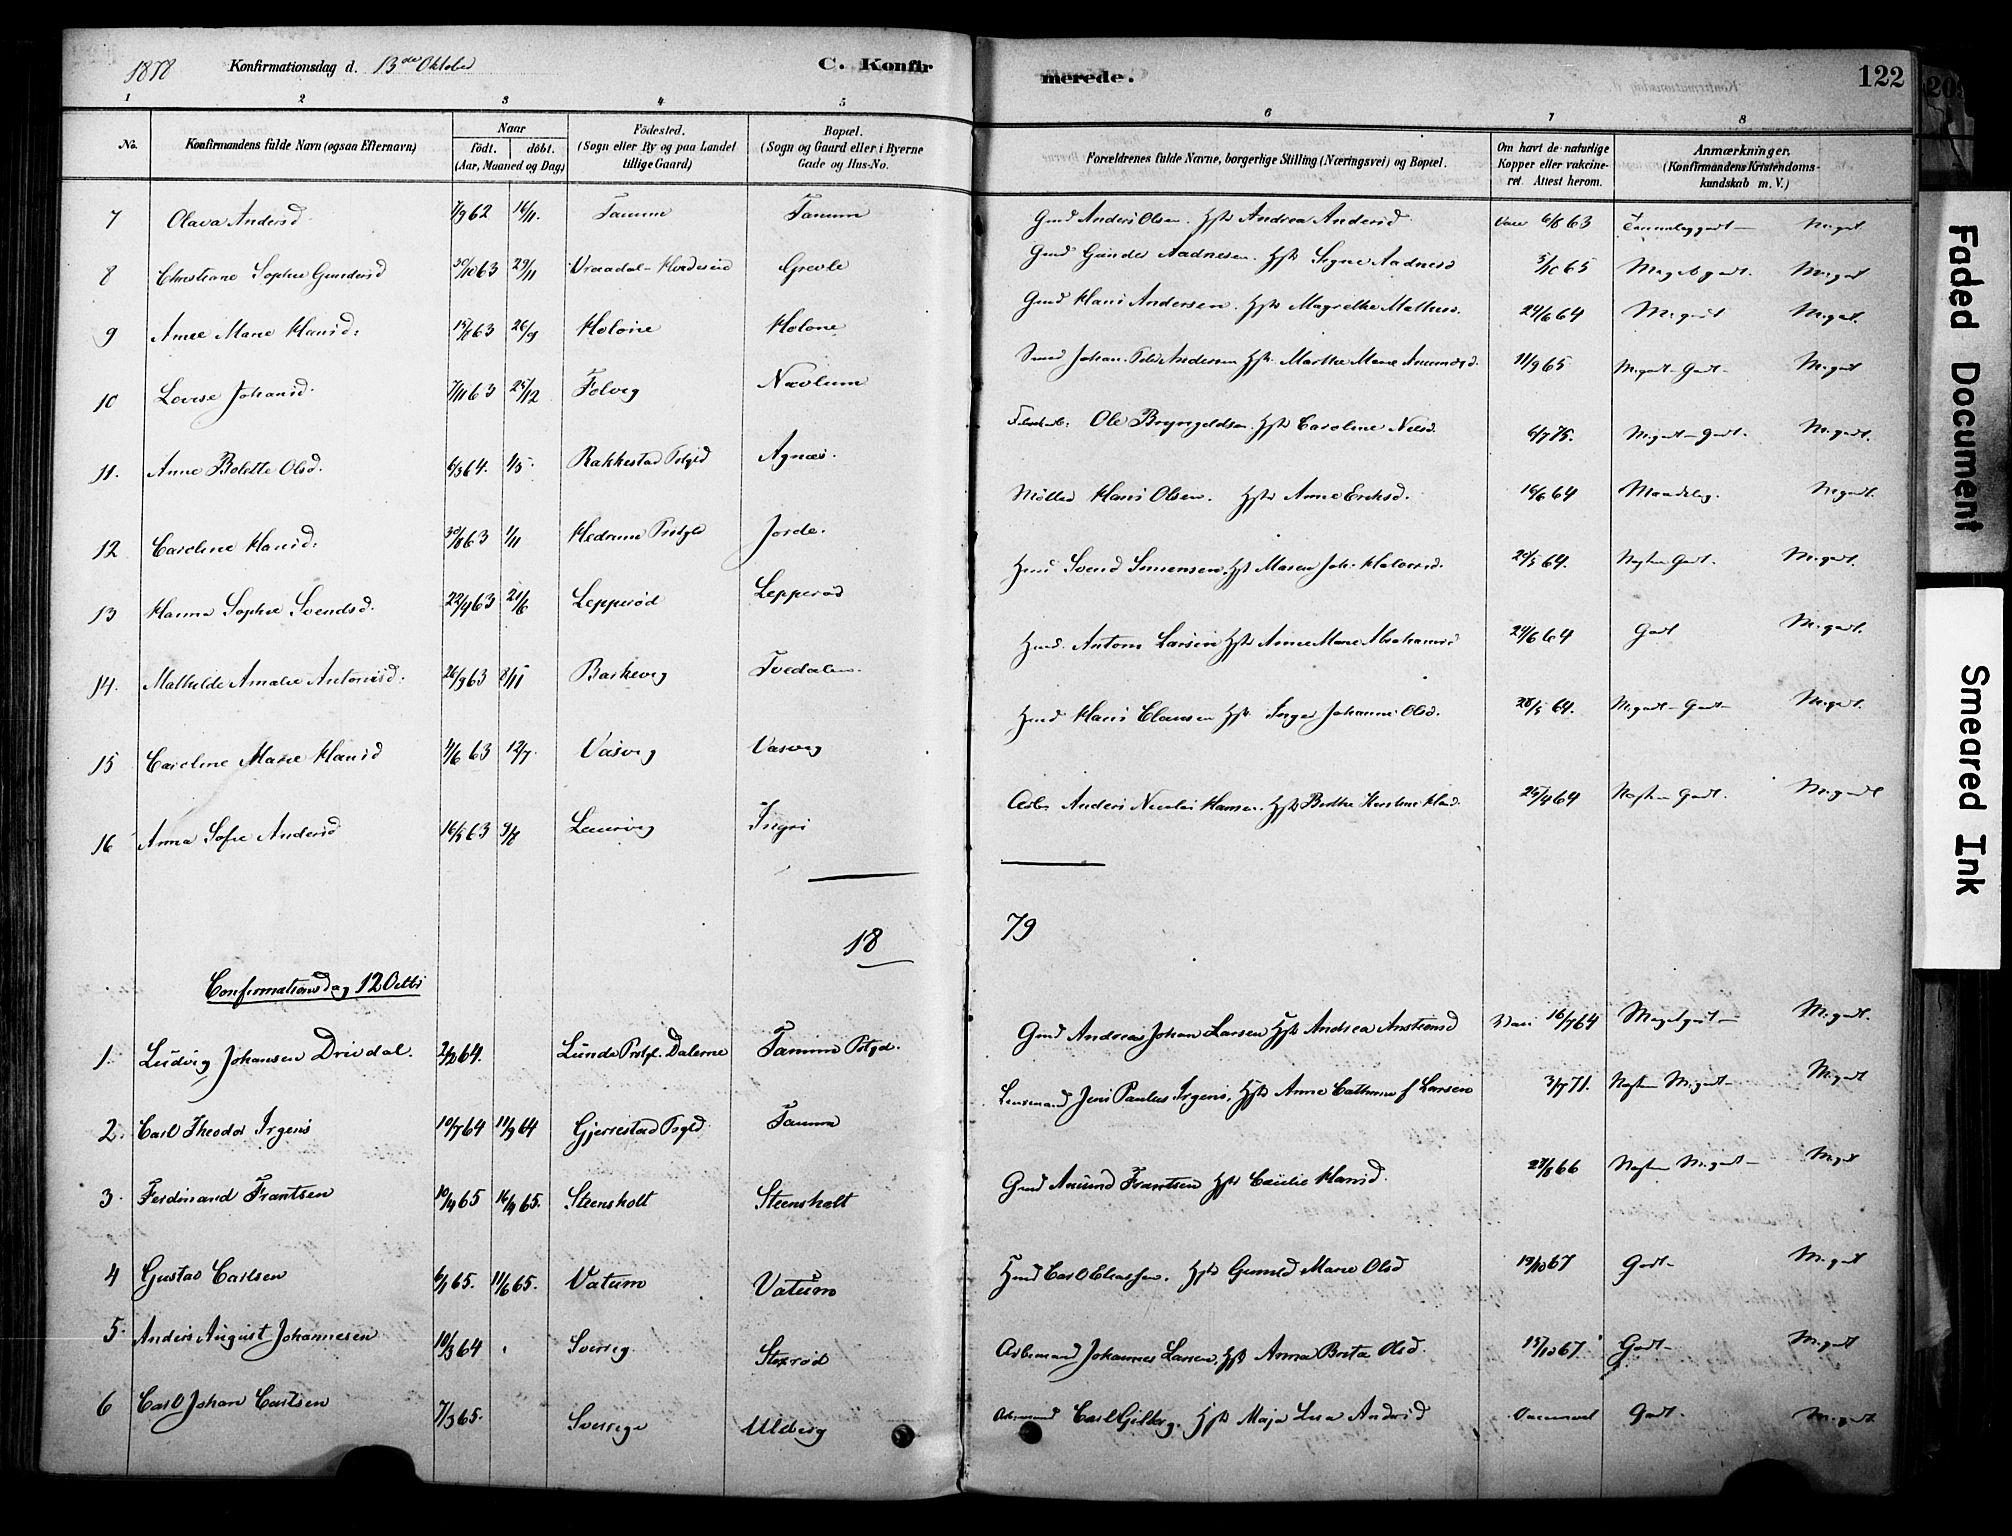 1878 Konfirmationsdag d. 13de Oktober C. Konfirmerede. 122
1 2 3 4 5 6 7 8
No. Konfirmandens fulde Navn (ogsaa Efternavn) Naar födt. döbt. (Aar, Maaned og Dag) Födested. (Sogn eller By og paa Landet tillige Gaard) Bopæl. (Sogn og Gaard eller i Byerne Gade og Hus-No. Forældrenes fulde Navne, borgerlige Stilling (Næringsvei) og Bopæl. Om havt de naturlige Kopper eller vakcineret. Attest herom. Anmærkninger. (Konfirmandens Kristendomskundskab m. V.)
7 Olava Andersd. 7/9 62 16/11. Tanum Tanum Gmd Anders Olsen. Hst Andrea Andersd. Vacc 6/8 63 M.godt.
8 Christiane Sophie Gundersd 30/10 63 29/11 Vraadal - Hvideseid Grevle Gmd Gunder Aadnesen. Hst Signe Aadnesd 3/10 65 Meget godt. M.godt
9 Anne Marie Hansd: 15/8 63 26/9 Holone Holone Gmd Hans Andersen. Hst Magrethe Mathisd. 24/6 64 M.godt M.godt.
10 Lovise Johansd. 7/11 63 25/12 Folvig Nævlum Smed Johan Andersen Hst. Marthe Marie 11/9 65 M.godt - Godt - M.godt
11. Anne Bolette Olsd. 6/3 64. 1/5. Rakkestad Prstgld Agnæs. Ole Bryngeldsen. Hst Caroline Nilsd. 6/7 75. M.godt - Godt. M.godt.
12 Caroline Hansd: 30/8 63 1/11 Hedrum Prstgld Jorde. Möller Hans Olsen. Hst Anne Eriksd. 16/6 64 Maadelig. M.godt.
13 Hanna Sophie Svendsd. 22/4 63 21/6 Lepperöd Lepperöd Hmd Svend Simensen, Hst Maren Joh. Halvorsd. 20/5 64. Næsten Godt. M.godt.
14. Mathilde Amalie Antonisd. 26/9 63 8/11 Barkevig Tvedalen. Hmd. Anton Larsen Hst Anne Marie Abrahamsd 24/6 64 Godt M.godt.
15 Caroline Marie Hansd 4/6 63 12/7. Vasvig Vasvig Hmd Hans Clausen Hst. Inger Johanne Olsd. 28/5 64. M.godt - Godt - M.godt.
16 Anna Sofie Andersd 16/5 63 9/8 Laurvig Ingri Arb. Anders Nicolai Hansen. Hst Berthe Kirstine 25/4 64 Næsten Godt. M.godt
18 79
Confirmationsdag 12 Octbr
1. Ludvig Johansen Drivdal. 2/2 64. Lunde Prstgl. Dalerne Tanum Pstgd. Gmd Andreas Johan Larsen Hst Andrea Anstensd Vacc 16/7 64 Megetgodt - M.godt.
2. Carl Theodor Irgens 10/7 64 11/9 64 Gjerrestad Prgld. Tanum Lensmand Jens Paulus Irgens, Hst Anne Cathrine f Larsen 3/7 71. Næsten M.godt - M.godt
3. Ferdinand Frantsen 10/4 65 16/4 65. Steensholt Steensholt Gmd Amund Frantsen Hst Cecilie Hansd. 28/8 66 Næsten M.godt - M.godt
4 Gustav Carlsen 6/1 65. 11/6 65. Vatum Vatum Hmd Carl Eliassen. Hst Gunild Marie Olsd 19/10 67 Godt - M.godt
5. Anders August Johannesen 10/3 64 Sverrig. Stexröd Arbmand Johannes Larsen, Hst Anna Brita Olsd. 15/10 67. Godt - M.godt
6 Carl Johan Carlsen 7/3 65. Sverrige Ulberg Arbmand Carl Gilberg. Hst Maja Lisa Andersd Godt. M.godt
Faded Document
Smeared Ink